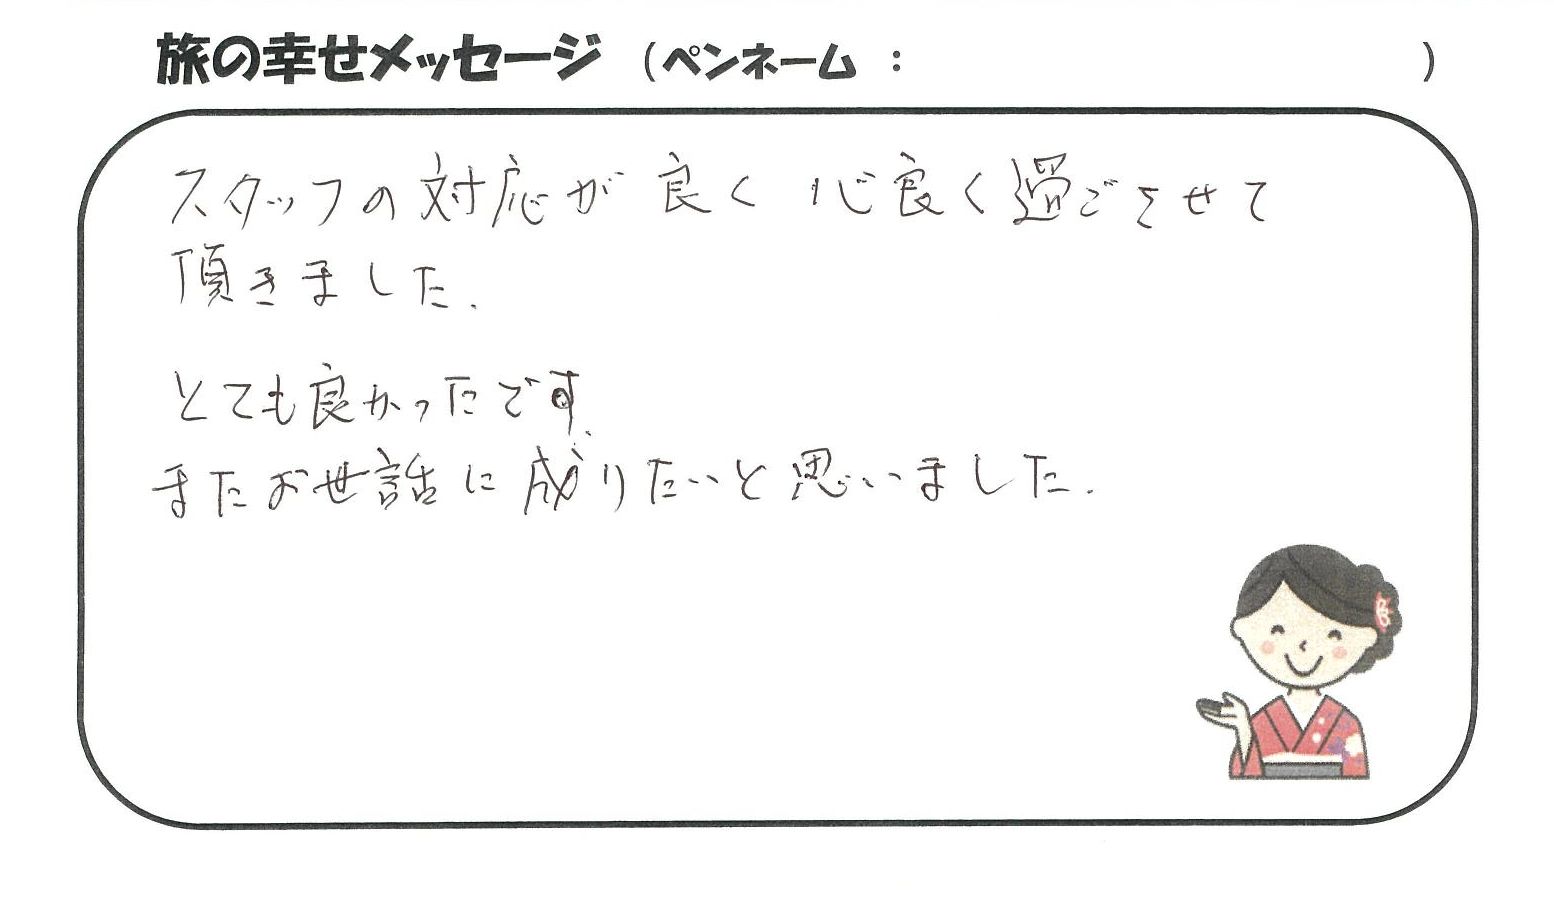 旅の幸せメッセージ （ペンネーム ： ）
スタッフの対応が良く 心良く過ごさせて
頂きました.
とても良かったです.
またお世話に成りたいと思いました.